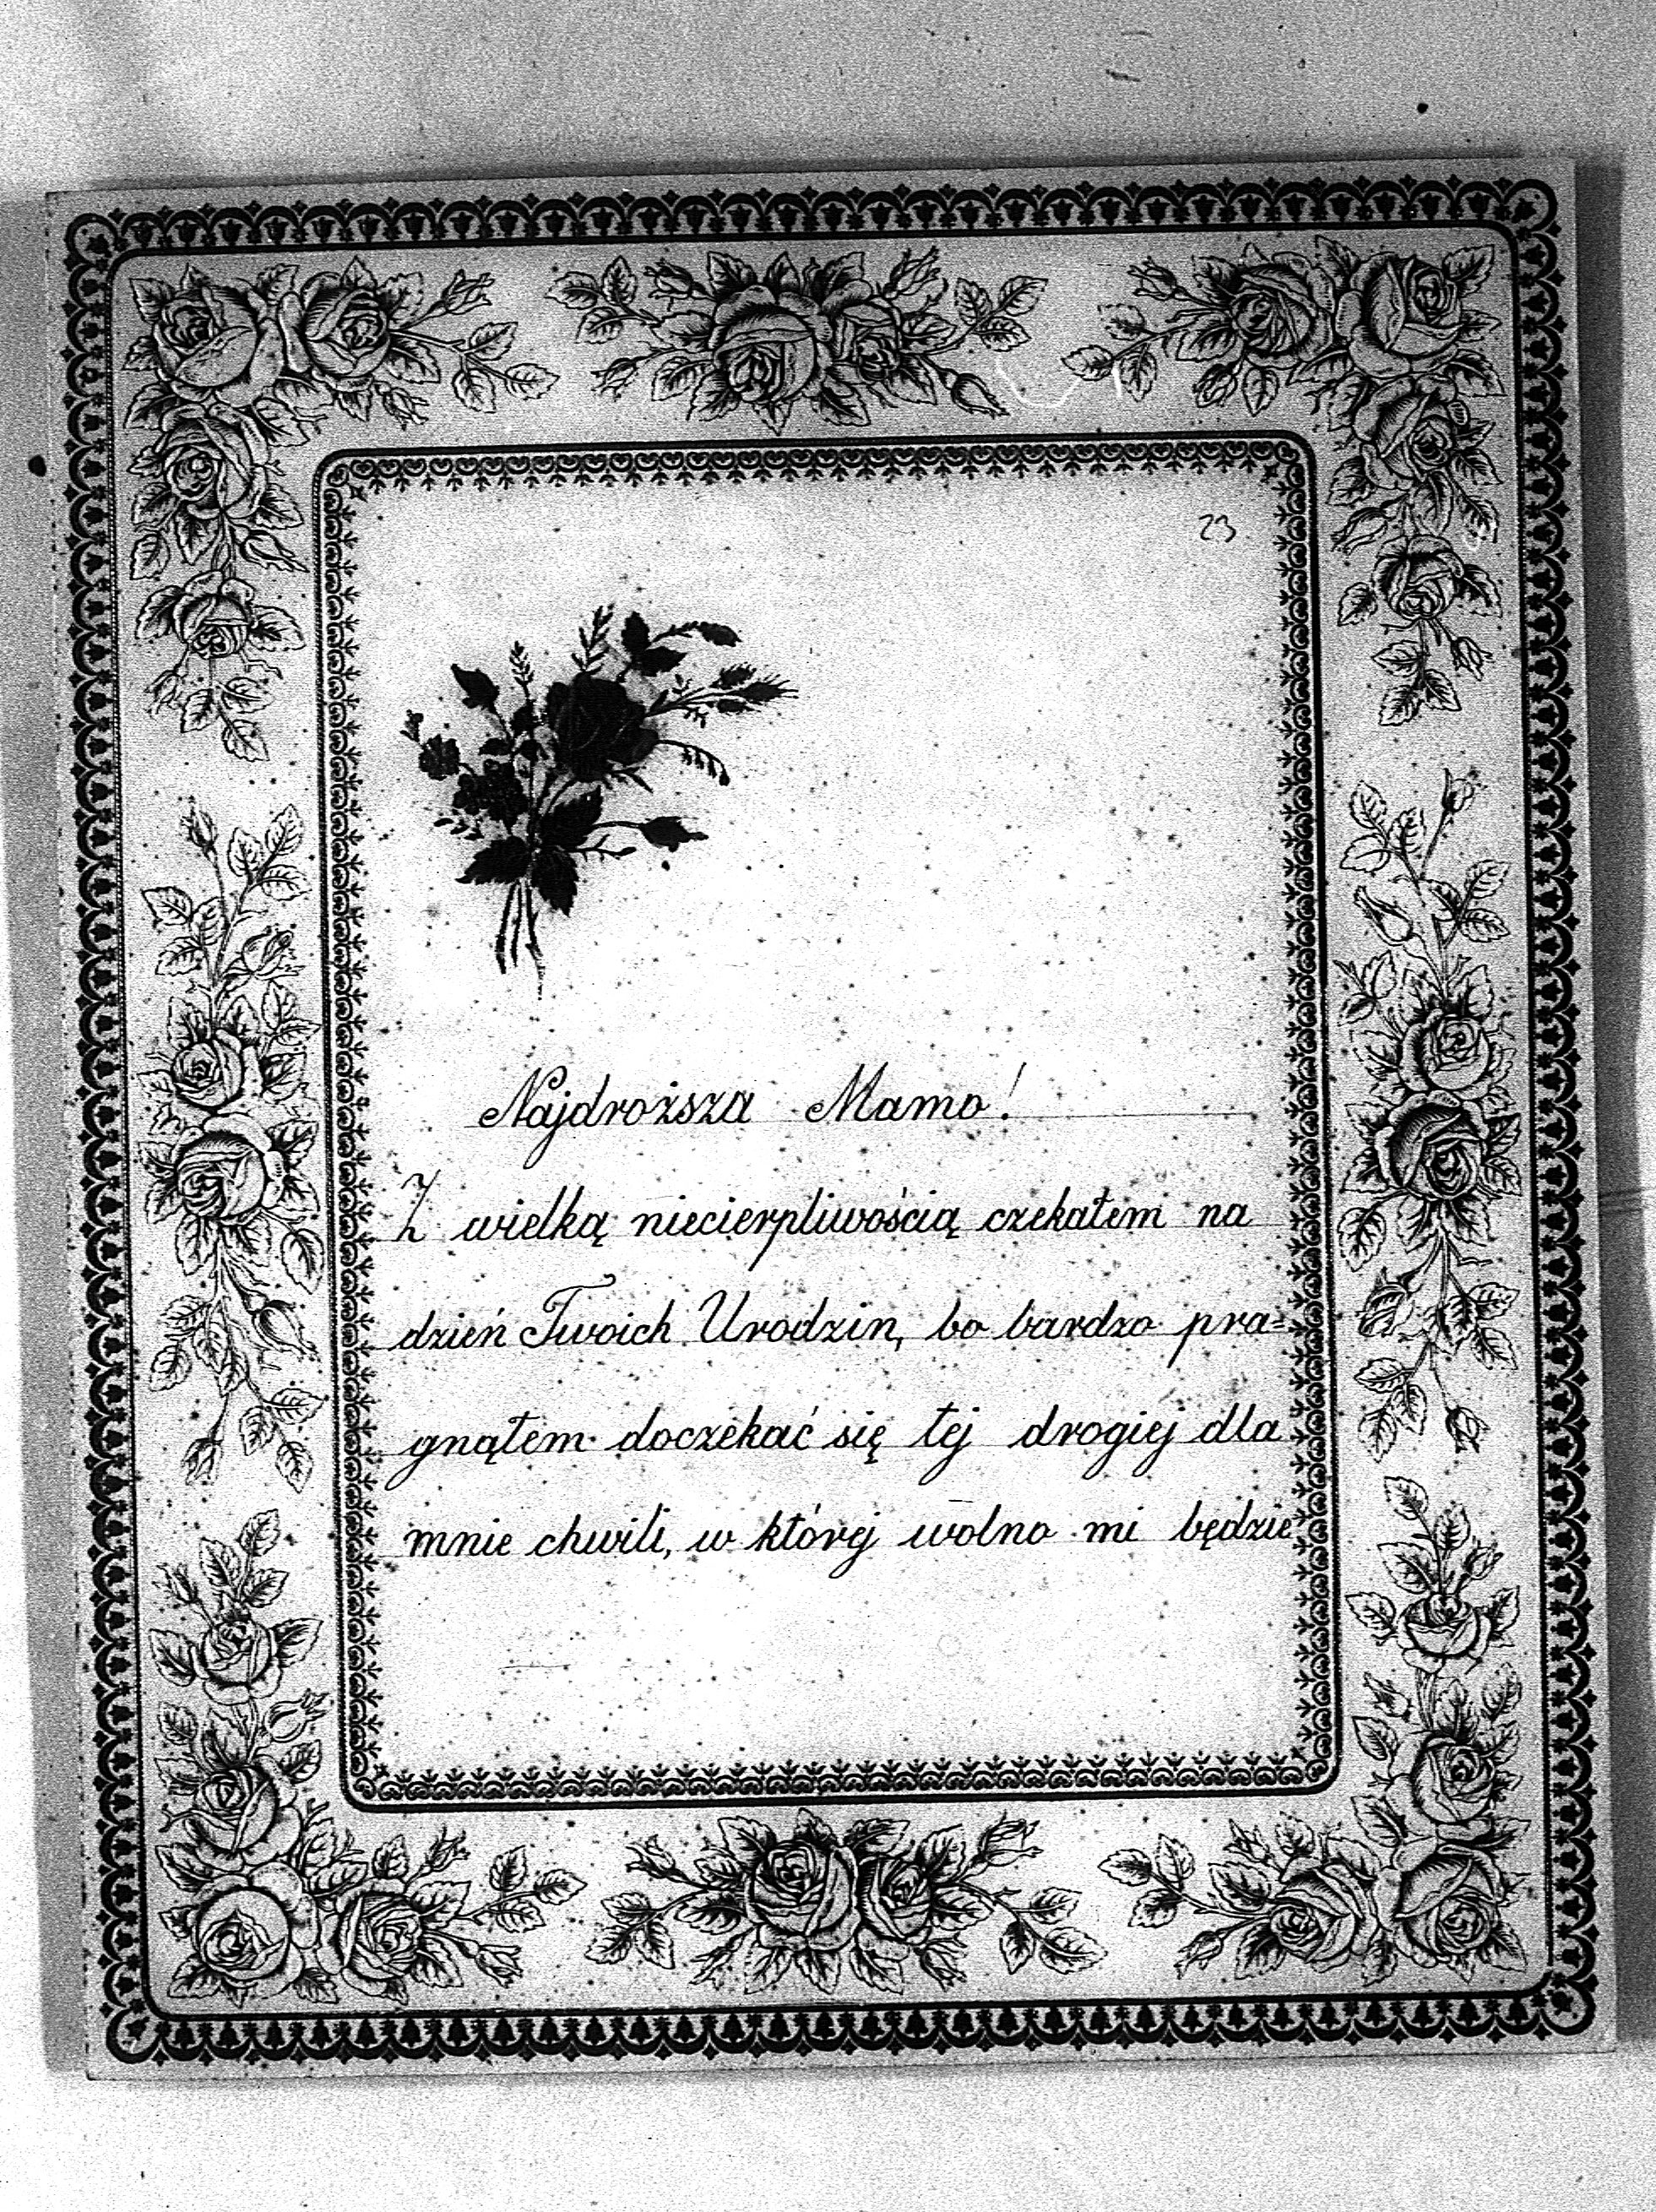 23
Najdroższa Mamo!
Z wielką niecierpliwością czekałem na
dzień Twoich Urodzin, bo bardzo pra=
gnąłem doczekać się tej drogiej dla
mnie chwili, w której wolno mi będzie